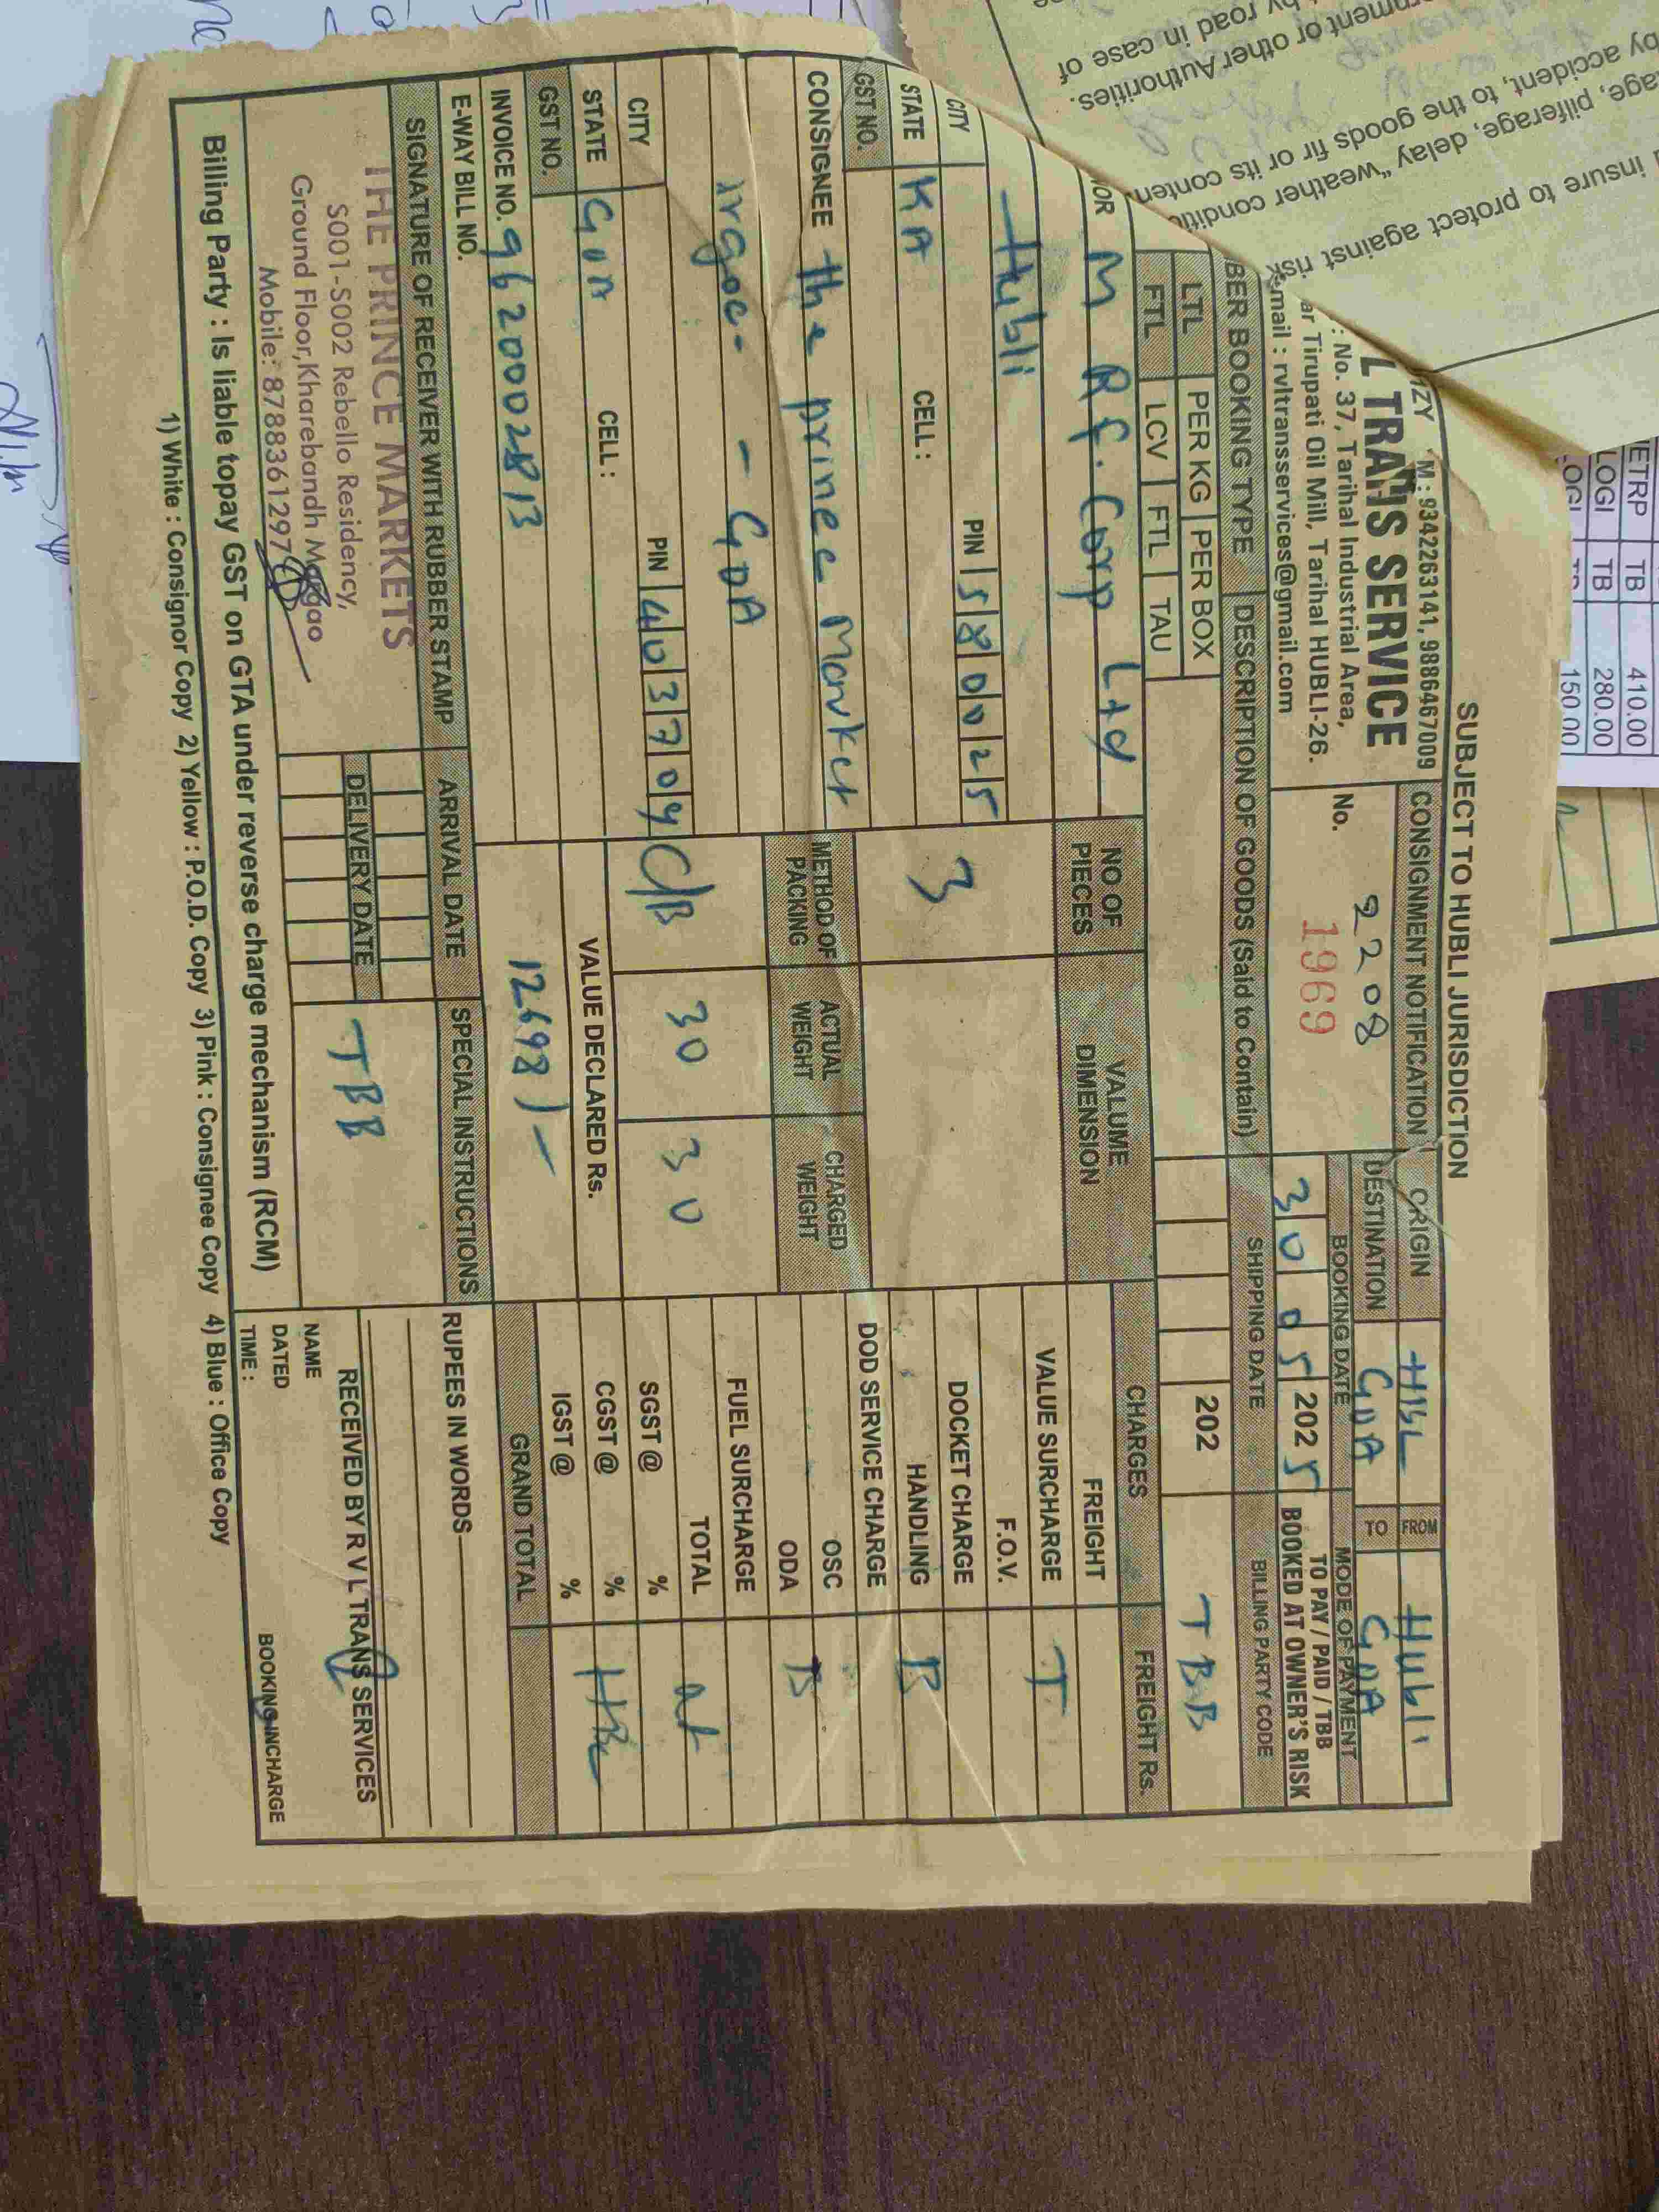 SUBJECT TO HUBLI JURISDICTION
1ZY M : 9342263141, 9886467009
L TRANS SERVICE
: No. 37, Tarihal Industrial Area,
ar Tirupati Oil Mill, Tarihal HUBLI-26.
mail : rvltransservices@gmail.com
CONSIGNMENT NOTIFICATION
2208
No. 1969
ORIGIN HBL FROM Hubli
DESTINATION GOA TO GOA
BOOKING DATE MODE OF PAYMENT
30 05 2025 TO PAY / PAID / TBB
BOOKED AT OWNER'S RISK
BER BOOKING TYPE DESCRIPTION OF GOODS (Said to Contain) SHIPPING DATE BILLING PARTY CODE
LTL PER KG PER BOX 202 TBB
FTL LCV FTL TAU
OR M Rf. Corp Ltd
NO OF PIECES VALUME DIMENSION CHARGES FREIGHT Rs.
Hubli
CITY PIN 580025
STATE KA CELL :
GST NO.
3
FREIGHT
VALUE SURCHARGE T
F.O.V.
DOCKET CHARGE
HANDLING B
DOD SERVICE CHARGE
CONSIGNEE the prince Market
- GOA
METHOD OF PACKING ACTUAL WEIGHT CHARGED WEIGHT
OSC
ODA B
FUEL SURCHARGE
CITY PIN 403709 C/B 30 30
TOTAL at
SGST @ %
STATE GOA CELL :
GST NO.
VALUE DECLARED Rs.
CGST @ % HBL
IGST @ %
INVOICE NO. 9620002813 12698/-
GRAND TOTAL
E-WAY BILL NO.
SIGNATURE OF RECEIVER WITH RUBBER STAMP ARRIVAL DATE SPECIAL INSTRUCTIONS RUPEES IN WORDS
THE PRINCE MARKETS
S001-S002 Rebello Residency,
Ground Floor,Kharebandh Margao
Mobile: 8788361297
DELIVERY DATE
TBB
RECEIVED BY R V L TRANS SERVICES
NAME
DATED
TIME :
BOOKING INCHARGE
Billing Party : Is liable topay GST on GTA under reverse charge mechanism (RCM)
1) White : Consignor Copy 2) Yellow : P.O.D. Copy 3) Pink : Consignee Copy 4) Blue : Office Copy
insure to protect against risk
age, pilferage, delay "weather conditi
by accident, to the goods fir or its conten
rnment or other Authorities.
by road in case of
ETRP TB 410.00
LOGI TB 280.00
LOGI 150.00